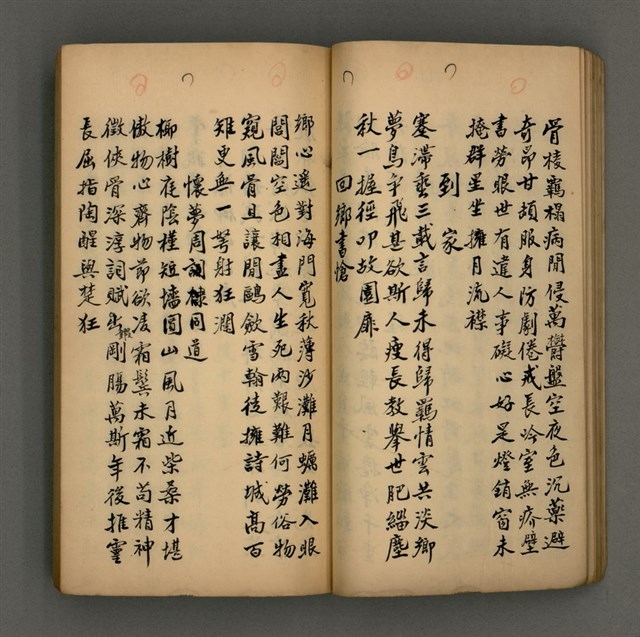 骨棱羈禢病閒侵萬欝盤空夜色沉藥避
奇昂甘頡服身防劇倦戒長吟室無疥壁
書勞眼世有達人事礙心好是燈銷窗未
掩群星坐擁月流襟
到家
塞滯蟄三載言歸未得歸羈情雲共淡鄉
夢鳥爭飛甚欲斯人瘦長教舉世肥緇塵
秋一握徑叩故園扉
回鄉書愴
鄉心遙對海門寬秋薄沙灘月蠣灘入眼
閭閻空色相盡人生死兩艱難何勞俗物
窺風骨且讓閒鷗飲雪翰徒擁詩城高百
雉更無一弩射狂瀾
懷夢周詞棣同道
柳樹庭陰槿短墻圓山風月近柴桑才堪
傲物心齋物節欲凌霜鬢未霜不苟精神
徵俠骨深淳詞賦出剛腸萬斯年後推靈
長屈指陶醒與楚狂